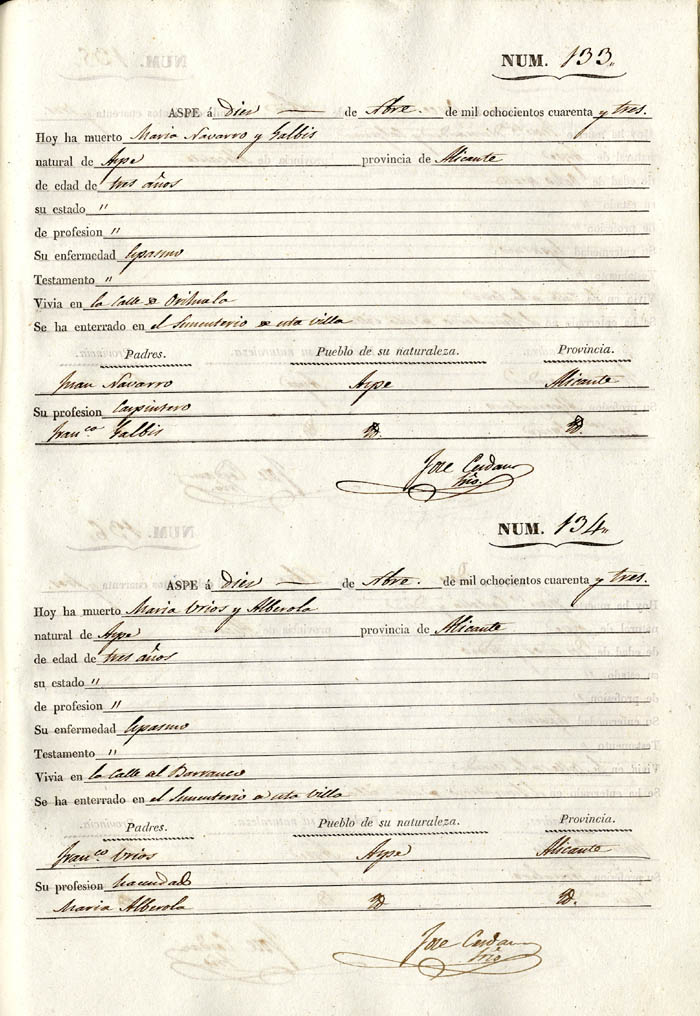 NUM. 133.
ASPE á Diez de Abre. de mil ochocientos cuarenta y tres.
Hoy ha muerto Maria Navarro y Galbis
natural de Aspe provincia de Alicante
de edad de tres años
su estado "
de profesion "
Su enfermedad Espasmo
Testamento "
Vivia en la Calle de Orihuela
Se ha enterrado en el Sementerio de esta Villa
Padres. Pueblo de su naturaleza. Provincia.
Juan Navarro Aspe Alicante
Su profesion Carpintero
Franca Galbis Id. Id.
Jose Cerdan
NUM. 134.
ASPE á Diez de Abre. de mil ochocientos cuarenta y tres.
Hoy ha muerto Maria Urios y Alberola
natural de Aspe provincia de Alicante
de edad de tres años
su estado "
de profesion "
Su enfermedad Espasmo
Testamento "
Vivia en la Calle del Barranco
Se ha enterrado en el Sementerio de esta Villa
Padres. Pueblo de su naturaleza. Provincia.
Franco Urios Aspe Alicante
Su profesion hacendado
Maria Alberola Id Id.
Jose Cerdan